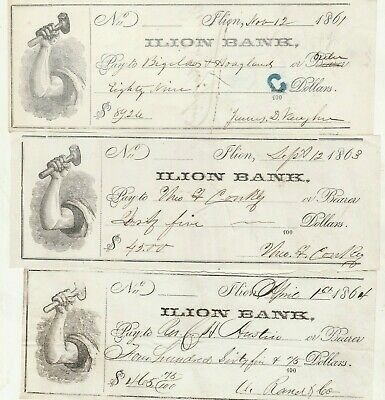 No Ilion, Nov 12 1861
ILION BANK,
Pay to Bigelow & Hoagland or Order
Eighty Nine 100 Dollars.
$ James D.
No Ilion, Sept 12 1863
ILION BANK,
Pay to Theo F Conkey or Bearer
Forty five 100 Dollars.
$ 45.00 Theo. F. Conkey
No Ilion, April 1st 1864
ILION BANK,
Pay to or Bearer
Four hundred Sixty five & 75 100 Dollars.
$ 465 75/100 & Co